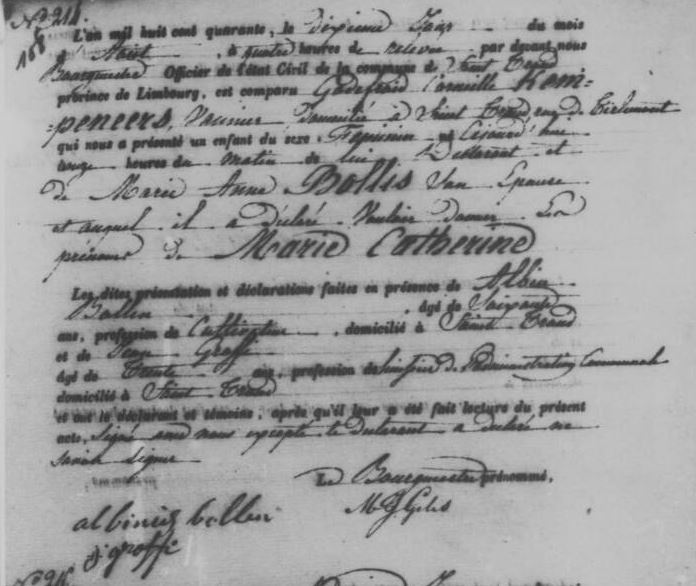 No 214.
L'an mil huit cent quarante, le dixieme Jour du mois
d'Aout, à quatre heures de relevée par devant nous
Bourgmestre Officier de l'état Civil de la commune de Saint Trond
province de Limbourg, est comparu Godefroid Corneille Kem-
peneers, Vannier Domicilié à Saint Trond, rue de Tirlemont
qui nous a présenté un enfant du sexe Feminin né ce jourd'hui
heures du matin de lui Déclarant et
de Marie Anne Bollis Son Epouse
et auquel il a déclaré Vouloir Donner Les
prénoms de Marie Catherine
Les dites présentation et déclarations faites en présence de Albin
Bollen, âgé de Soixante
ans, profession de Cultivateur, domicilié à Saint Trond
et de Jean Groffi
âgé de Trente ans, profession de de l'administration Communale
domicilié à Saint Trond
et ont le déclarant et témoins, après qu'il leur a été fait lecture du présent
acte, Signé avec nous excepté le Déclarant a déclaré ne
savoir signer
Le Bourgmestre prénommé,
M J Gilis
albinus bollen
j groffi